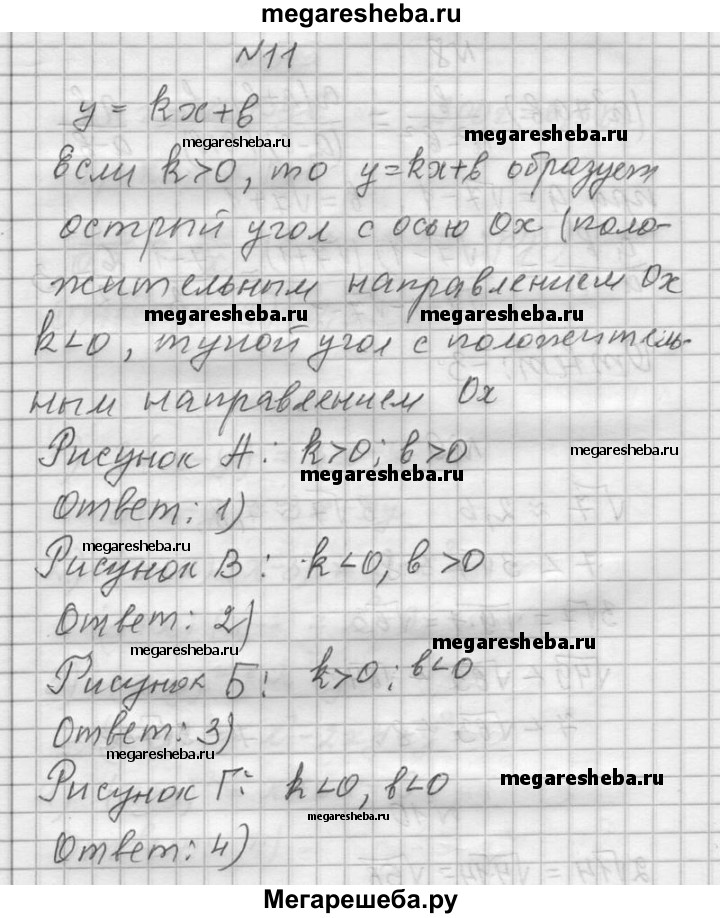 megaresheba.ru
N11
y = kx+b
megaresheba.ru
megaresheba.ru
Если k>0, то y=kx+b образует
острый угол с осью Ox (поло-
жительным направлением Ox
megaresheba.ru
megaresheba.ru
k<0, тупой угол с положитель-
ным направлением Ox
Рисунок А: k>0; b>0
megaresheba.ru
megaresheba.ru
Ответ: 1)
megaresheba.ru
Рисунок В: k<0, b>0
Ответ: 2)
megaresheba.ru
megaresheba.ru
Рисунок Б: k>0; b<0
Ответ: 3)
megaresheba.ru
Рисунок Г: k<0, b<0
megaresheba.ru
megaresheba.ru
Ответ: 4)
Мегарешеба.ру